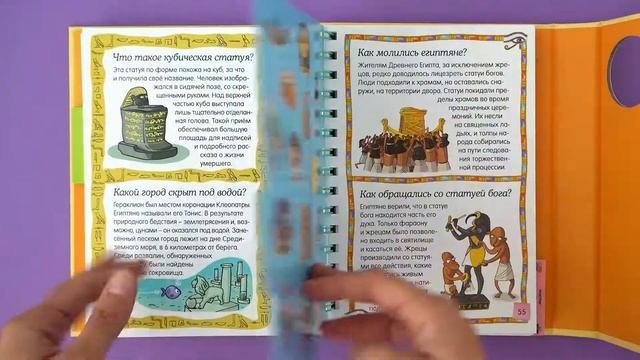 Что такое кубическая статуя?
Эта статуя по форме похожа на куб, за что
и получила своё название. Человек изобра-
жался в сидячей позе, со скре-
щенными руками. Над верхней
частью куба выступала
лишь тщательно отделан-
ная голова. Такой приём
обеспечивал большую
площадь для надписей
и подробного рас-
сказа о жизни
умершего.
Какой город скрыт под водой?
Гераклион был местом коронации Клеопатры.
Египтяне называли его Тонис. В результате
природного бедствия – землетрясения и, воз-
можно, цунами – он оказался под водой. Зане-
сённый песком город лежит на дне Среди-
земного моря, в 6 километрах от берега.
Среди развалин, обнаруженных
были найдены
сокровища.
Как молились египтяне?
Жителям Древнего Египта, за исключением жре-
цов, редко доводилось лицезреть статуи богов.
Люди подходили к храмам, но оставались сна-
ружи, на территории двора. Статуи покидали пре-
делы храмов во время
праздничных цере-
моний. Их несли
на священных ла-
дьях, и толпы наро-
да собирались
на пути следова-
ния торжествен-
ной процессии.
Как обращались со статуей бога?
Египтяне верили, что в статуе
бога находится часть его
духа. Только фараону
и жрецам было позволе-
но входить в святилище
и касаться её. Жрецы
производили со статуя-
ми все действия, какие
живым
55